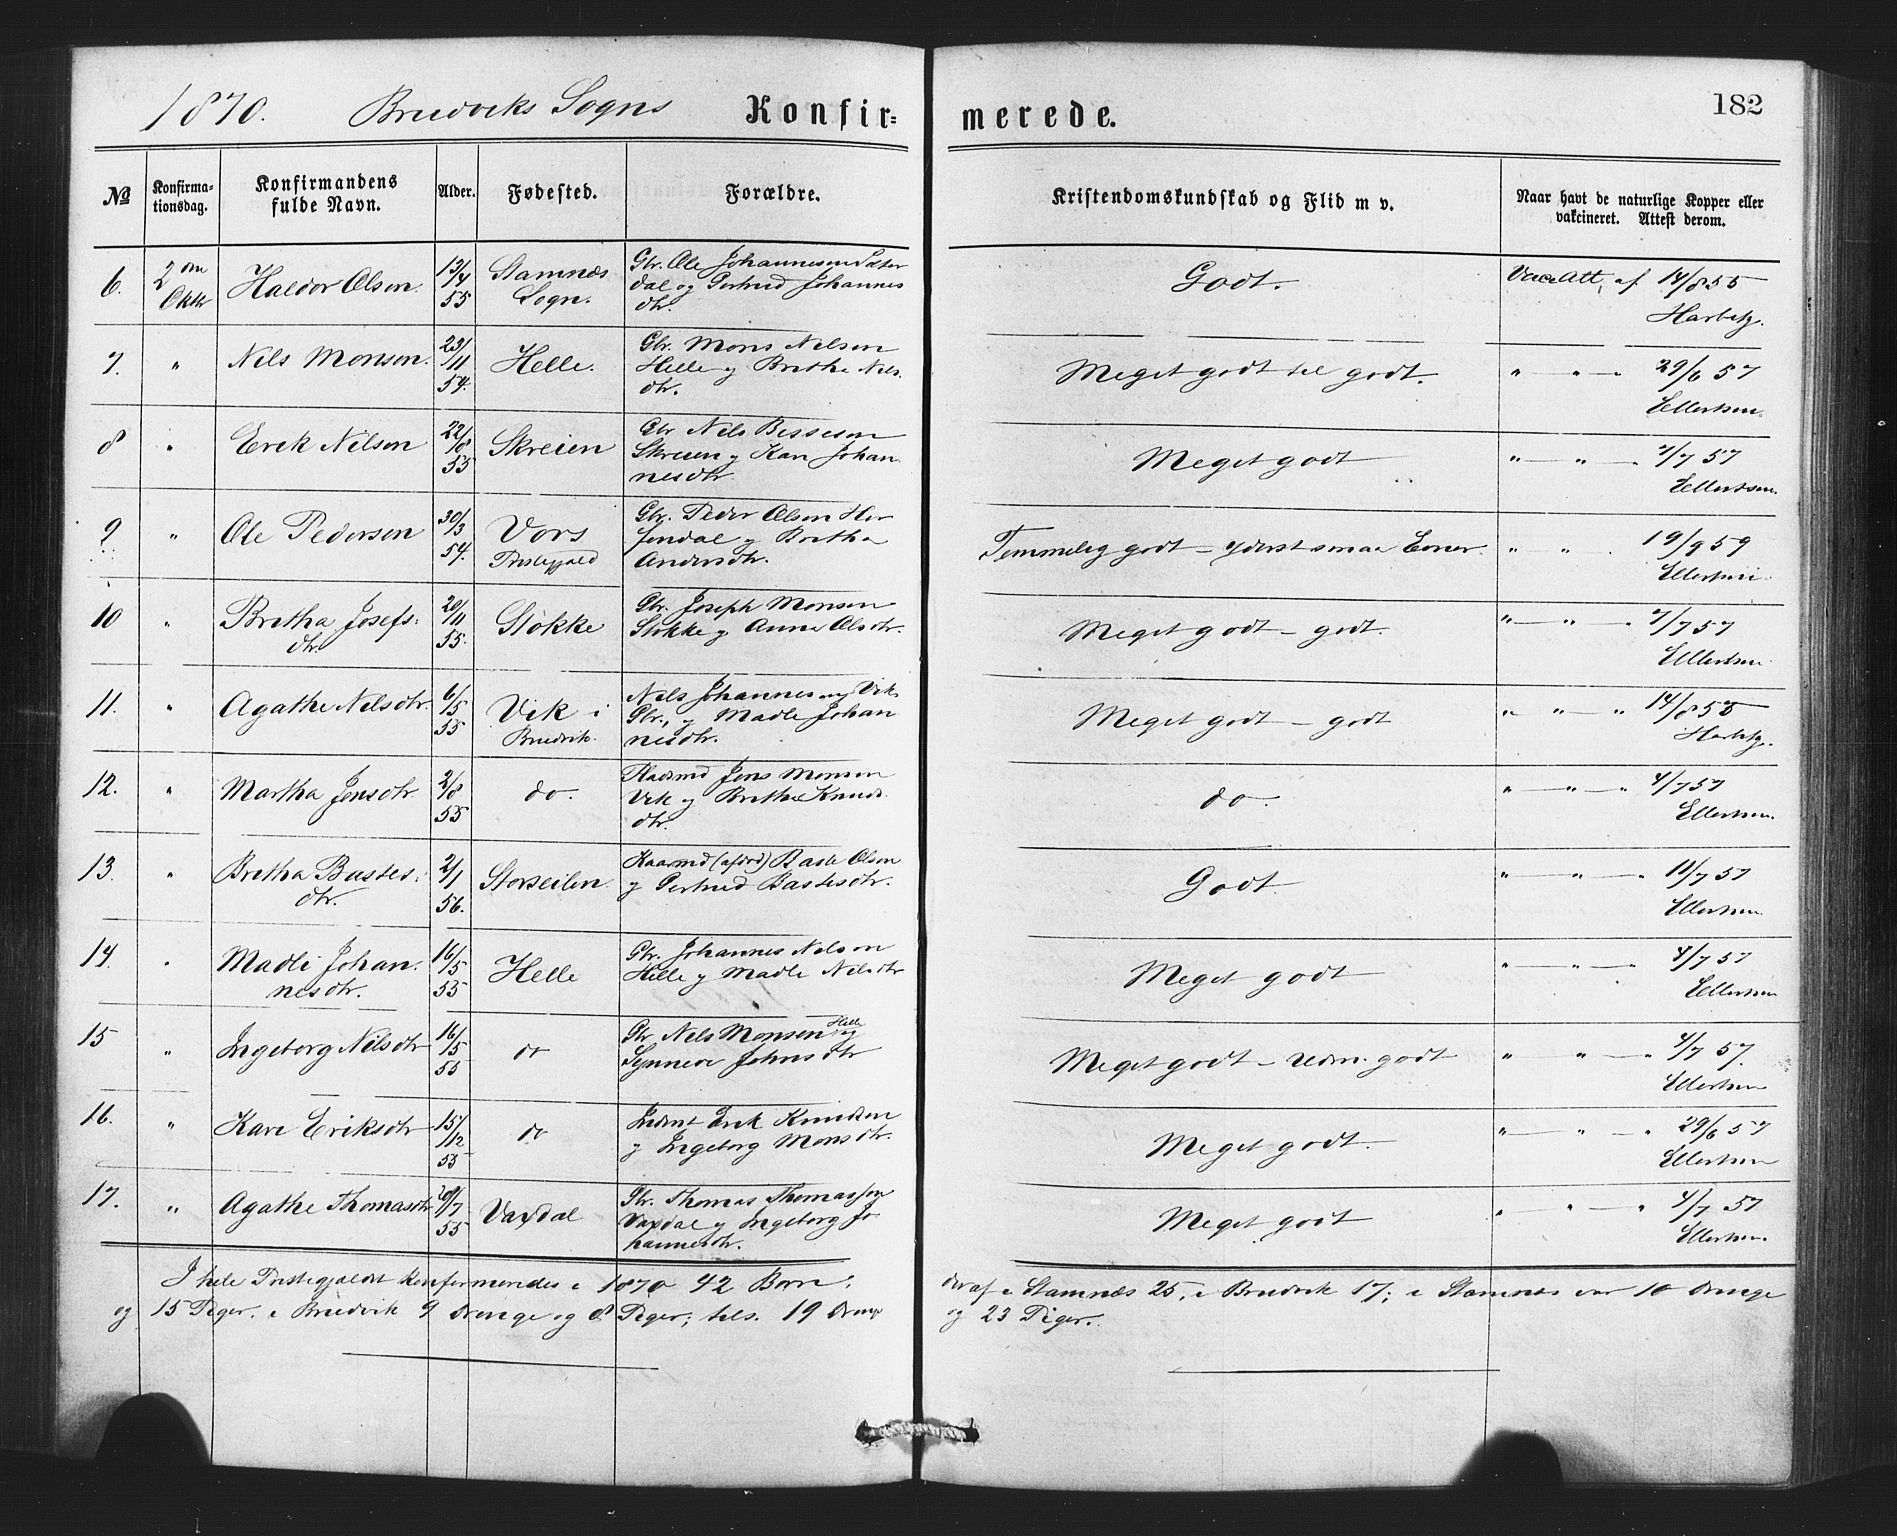 1870. Bruviks Sogns Konfir=
merede. 182
№ Konfirma-tionsdag. Konfirmandens fulde Navn. Alder. Fødested. Forældre.
Kristendomskundskab og Flid m v. Naar havt de naturlige Kopper eller vakcineret. Attest derom.
6. 2den Oktr Haldor Olsen. 13/4 55 Stamnæs Sogn. Gbr. Ole Johannesen Sæter
dal og Gertrud Johannes
dtr.
Godt. VaccAtt. af 14/8 55
Harbitz.
7. " Nils Monsen. 23/11 54. Helle. Gbr. Mons Nilsen
Helle og Brithe Nils.
dtr.
Meget godt til godt. " — " — 29/6 57
Ellertsen.
8 " Erik Nilsen 22/8 55 Skreien Gbr Nils
Skreien og Kari Johan
nesdtr.
Meget godt " — " — " 7/7 57
Ellertsen.
9 " Ole Pedersen 30/3 54. Vors Præstegjæld Gbr. Peder Olsen Her
fendal og Britha
Andersdtr.
Temmelig godt – yderst smaa Evner. " " . 19/9 59
Ellertsen.
10 " Britha Josefs: dtr. 20/11 55. Støkke Gbr. Joseph Monsen
Støkke og Anna Olsdtr.
Meget godt – godt. " — " — " 7/7 57
Ellertsen
11. " Agathe Nilsdtr. 6/5 55 Vik i Bruvik. Nils Johannesen Vik
Gbr., og Madle Johan
nesdtr.
Meget godt – godt " " — " 14/8 55
Harbitz.
12. " Martha Jensdtr 2/8 55 do. Pladsmd Jens Monsen
Vik og Britha Knuds
dtr.
do. " — " — " 4/7 57
Ellertsen.
13. " Britha Bastes: dtr. 2/1 56. Storseilen. Kaarmd (afdød) Baste Olsen
og Gertrud Bastesdtr.
Godt " — " — " 11/7 57
Ellertsen.
14. " Madli Johan. nesdtr. 16/5 55 Helle Gbr. Johannes Nilsen
Helle og Madle Nilsdtr
Meget godt " — " — " 4/7 57
Ellertsen
15 " Ingeborg Nilsdtr 16/5 55 do Gbr Nils Monsen Helle og
Synneve Johnsdtr
Meget godt – Udm. godt " " — " 4/7 57.
Ellertsen
16. " Kari Eriksdtr 15/12 55 do Inderst Erik Knudsen
og Ingeborg Monsdtr.
Meget godt. " — " — " 29/6 57
Ellertsen
17. " Agathe Thomasdtr 20/7 55 Vaxdal Gbr. Thomas Thomassen
Vaxdal og Ingeborg Jo
hannesdtr.
Meget godt " — " — " 4/7 57
Ellertsen.
I hele Præstegjældet konfirmeredes i 1870 42 Børn;
deraf i Stamnæs 25, i Bruvik 17; i Stamnæs var 10 Drenge
og 15 Piger. i Bruvik 9 Drenge og 8 Piger; tils. 19 Drenge
og 23 Piger.